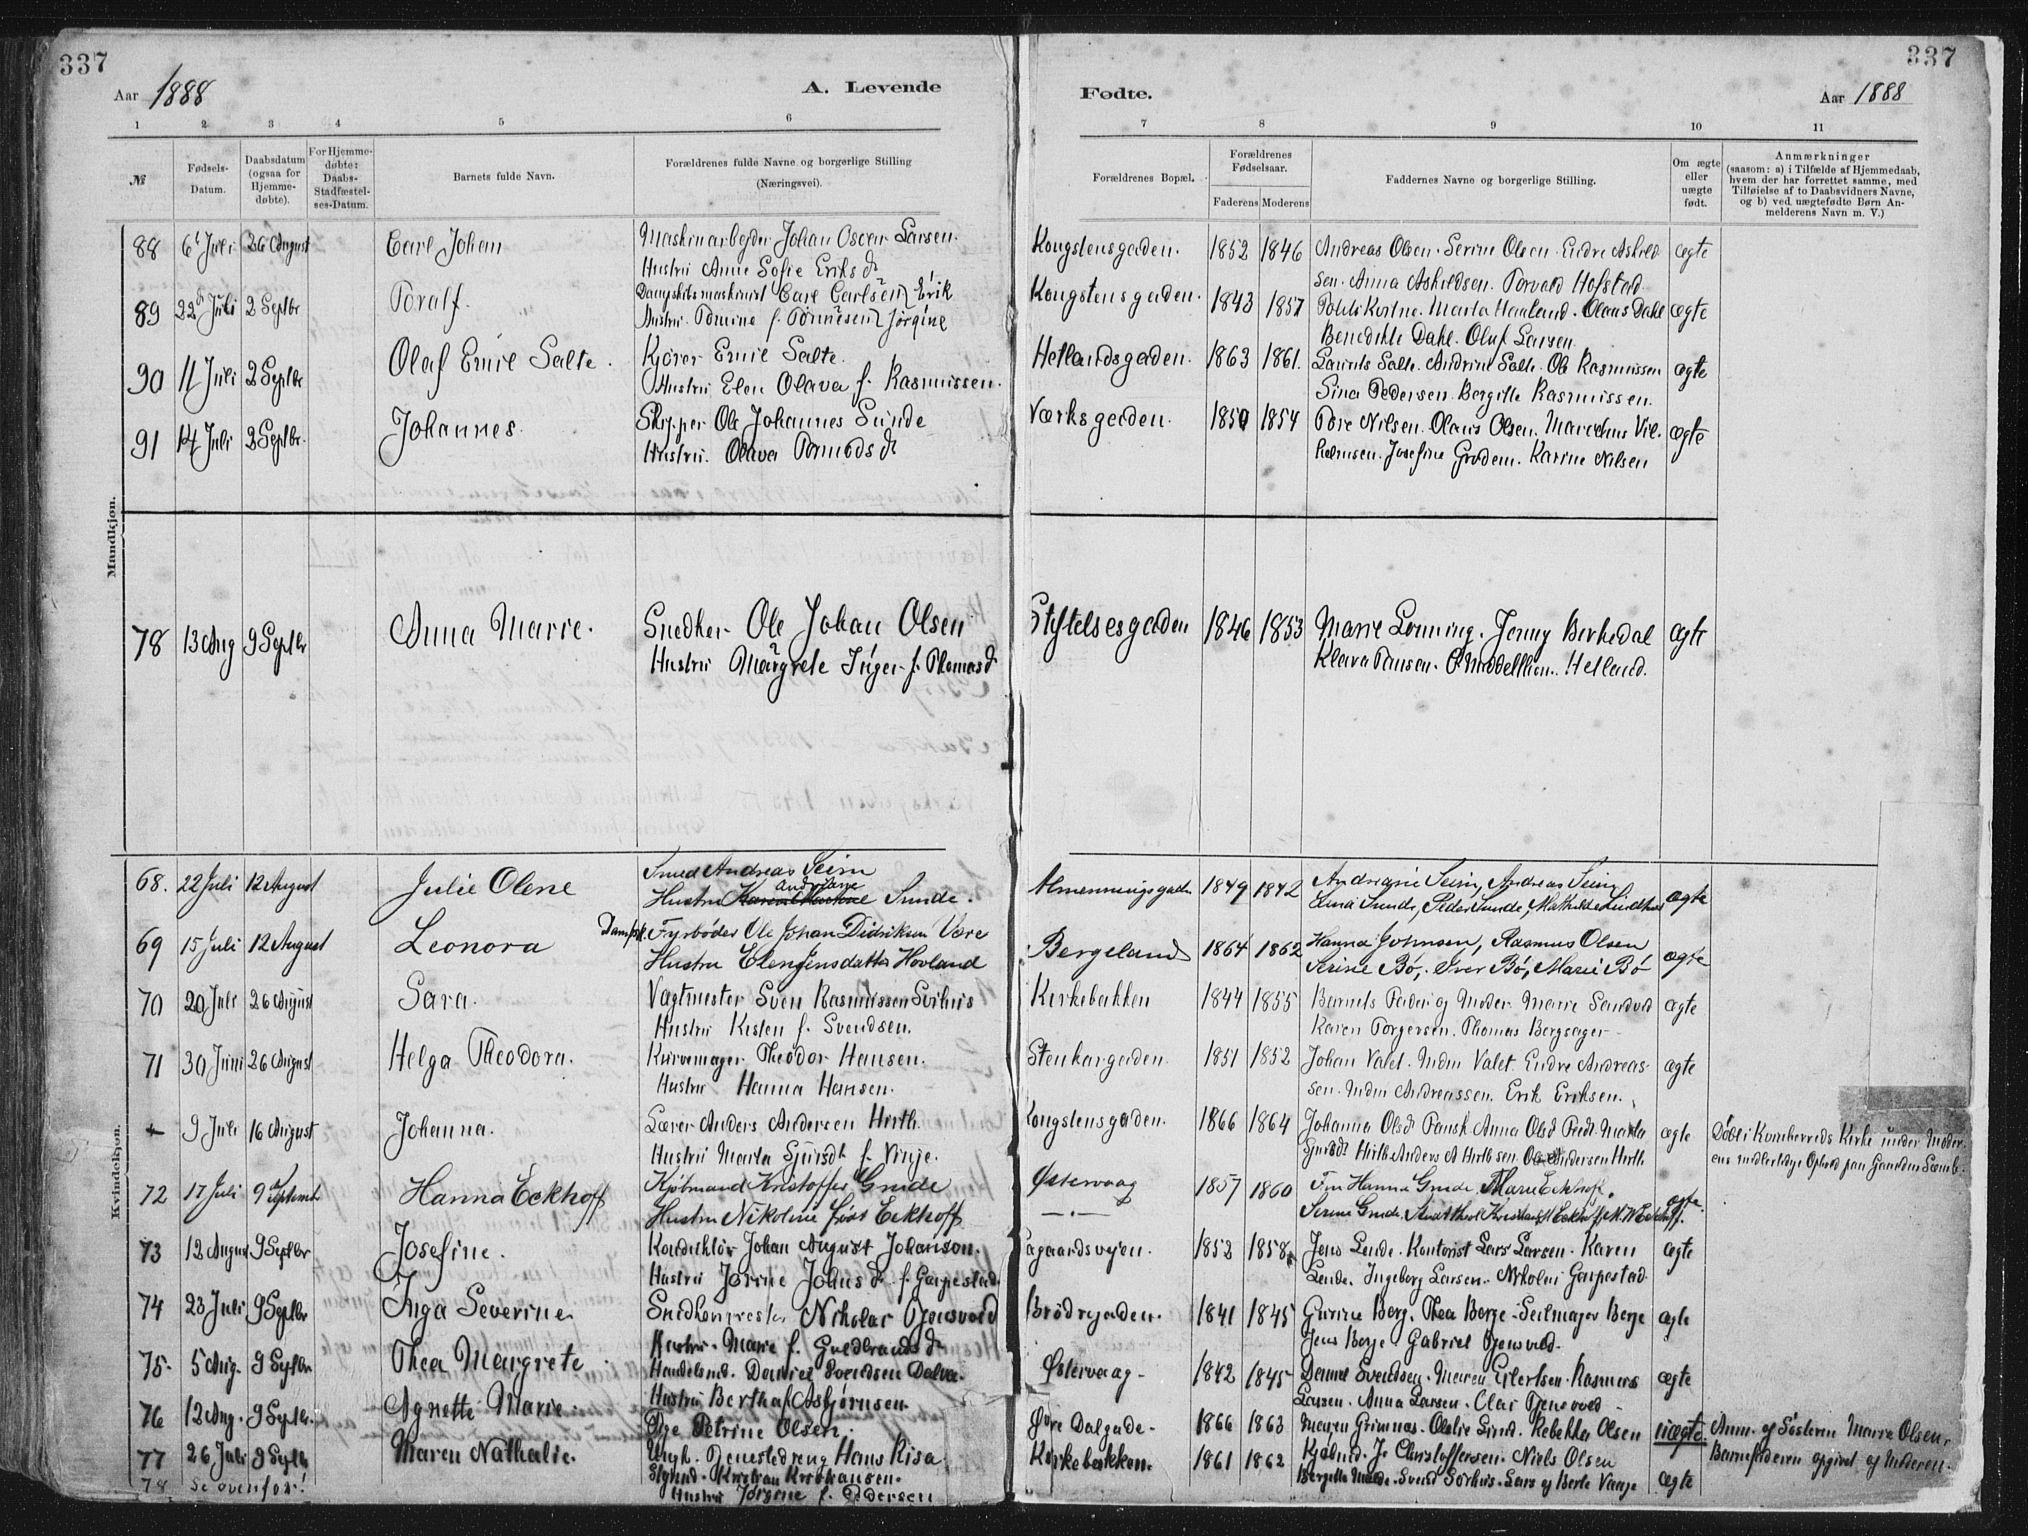 337
337
Aar 1888
A. Levende
Fødte.
Aar 1888
1 2 3 4 5 6 7 8 9 10 11
№
Fødsels-Datum.
Daabsdatum (ogsaa for Hjemme-døbte).
For Hjemme-døbte: Daabs-Stadfæstel-ses-Datum.
Barnets fulde Navn.
Forældrenes fulde Navne og borgerlige Stilling (Næringsvei).
Forældrenes Bopæl.
Forældrenes Fødselsaar.
Faderens Moderens
Faddernes Navne og borgerlige Stilling.
Om ægte eller uægte født.
Anmærkninger
(saasom: a) i Tilfælde af Hjemmedaab,
hvem der har forrettet samme, med
Tilføielse af to Daabsvidners Navne,
og b) ved uægtefødte Børn An-
melderens Navn m. V.)
Mandkjøn.
88 6 Juli 26 August Carl Johan Maskinarbeider Johan Oscar Larsen. Kongstensgaden. 1852 1846 Andreas Olsen. Serine Olsen. Endre Askild ægte
Hustru Anne Sofie Eriksd sen. Anna Askildsen. Torvald Hofstad
89 22 Juli 2 Septbr Toralf. Dampskibsmaskinist Carl Carlsen Erik Kongstensgaden. 1843 1857 Marta Haaland. Olaus Dahl ægte
Hustru. Tomine f. Tønnesen Jørgine Benedikte Dahl. Oluf Larsen.
90 11 Juli 2 Septbr Olaf Emil Salte. Kjører Emil Salte. Hetlandsgaden. 1863 1861. Laurits Salte. Andrine Salte. Ole Rasmussen ægte
Hustru Elen Olava f. Rasmussen. Sina Pedersen. Bergitte Rasmussen.
91 14 Juli 2 Septbr. Johannes. Skipper Ole Johannes Sunde Værksgaden. 1850 1854 Tore Nilsen. Olaus Olsen. Vil- ægte
Hustru. Olava Tormodsd helmsen. Josefine Grødem. Karine Nilsen
78 13 Aug 9 Septbr Anna Marie. Snedker Ole Johan Olsen Stiftelsesgaden 1846 1853 Marie Lønning. Jenny Birkedal ægte
Hustru Margrete Inger f. Thomasd Klara Hetland.
Kvindekjøn.
68. 22 Juli 12 August Julie Olene Smed Andreas Seim Almenningsgade 1849 1842 Andreas Seim ægte
Hustru Sunde. Sunde, Peder Sunde, Mathilde
69 15 Juli 12 August Leonora Dampsk. Fyrbøder Ole Johan Didriksen Være Bergeland 1864 1862 Hanna Johnsen, Rasmus Olsen ægte
Hustru Elen Jensdatter Hovland Serine Bø, Iver Bø, Marie Bø
70 20 Juli 26 August Sara. Vagtmester Sven Rasmussen Sørhus Kirkebakken 1844 1855 Barnets Fader og Moder. Marie Sandvd ægte
Hustru Kisten f. Svendsen. Karen Torgersen. Thomas Bergsager
71 30 Juni 26 August Helga Theodora. Kurvemager Theodor Hansen. Stenkargaden 1851 1852 Johan Valet. Mdm Valet. Endre Andreas- ægte
Hustru Hanna Hansen. sen. Mdm Andreassen. Erik Eriksen.
9 Juli 16 August Johanna. Lærer Anders Andersen Hirth. Kongstensgaden. 1866 1864 Johanna Olsd Anna Olsd Marta ægte Døbt i Kvinherreds Kirke under Moder-
Hustru Marta Sjursdt f. Vinje. Sjursdt Hirth Anders A Hirth sen. Ole Andersen Hirth ens midlertidige Ophold paa Gaarden
72 17 Juli 9 September Hanna Eckhoff Kjøbmand Kristoffer Grude Østervaag 1857 1860 Fru Hanna Grude, Marie Eckhoff. ægte.
Hustru Nikoline født Eckhoff —·— Serine Grude
73 12 August 9 Septbr Josefine. Konduktør Johan August Johanson. agaardsvejen. 1852 1858 Jens Lende. Kontorist Lars Larsen. Karen ægte
Hustru Jorine Johnsd. f. Garpestad. Lende. Ingeborg Larsen. Nikolai Garpestad
74 23 Juli 9 Septbr Inga Severine. Snedkermester Nikolai Tjensvold Brødregaden. 1841 1845 Gurine Berg. Thea Berge. Seilmager Berge ægte
Hustru. Marie f. Guldbrandsd Jens Berge. Gabriel Tjensvold.
75. 5 Aug. 9 Septbr Thea Margrete Handelsmd. Daniel Svendsen Dalva. Østervaag 1842 1845 Daniel Svendsen. Maren Eilertsen. Rasmus ægte
Hustru Bertha f Asbjørnsen. Larsen. Anna Larsen. Olai Tjensvold
76 12 Aug. 9 Septbr. Agnette Marie. Pige Petrine Olsen. Øvre Dalgade 1866 1863 Maren Grimnæs. Rebekka Olsen uægte Anm. af Søsteren Marie Olsen.
Ungk. Tjenestedreng Hans Risa Barnefaderen opgivet af Moderen.
77 26 Juli 9 Septbr Maren Nathalie. Kristian Kristiansen. Kirkebakken. 1861 1862 Kjøbmd. J. Christoffersen. Niels Olsen ægte
Hustru Jørgine f. Pedersen Svend Sørhus. Lars og Berte Vaage
78 se ovenfor!